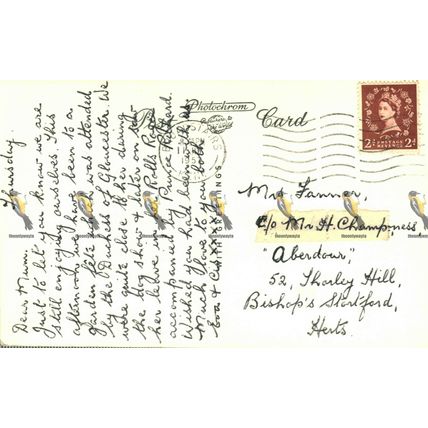 Photochrom
Post Card
2½d POSTAGE REVENUE 2½d
Thursday.
Dear Mum,
Just to let you know we are
still enjoying ourselves. This
afternoon we have been to a
garden fete which was attended
by the Duchess of Gloucester. We
were quite close to her during
the Dog show & later on saw
her leave in her Rolls Royce
accompanied by Prince Richard.
Wished you had been with us.
Much love to you both
Mrs Fanner,
c/o Mr H. Champness
"Aberdour",
52, Thorley Hill,
Bishop's Stortford,
Herts.